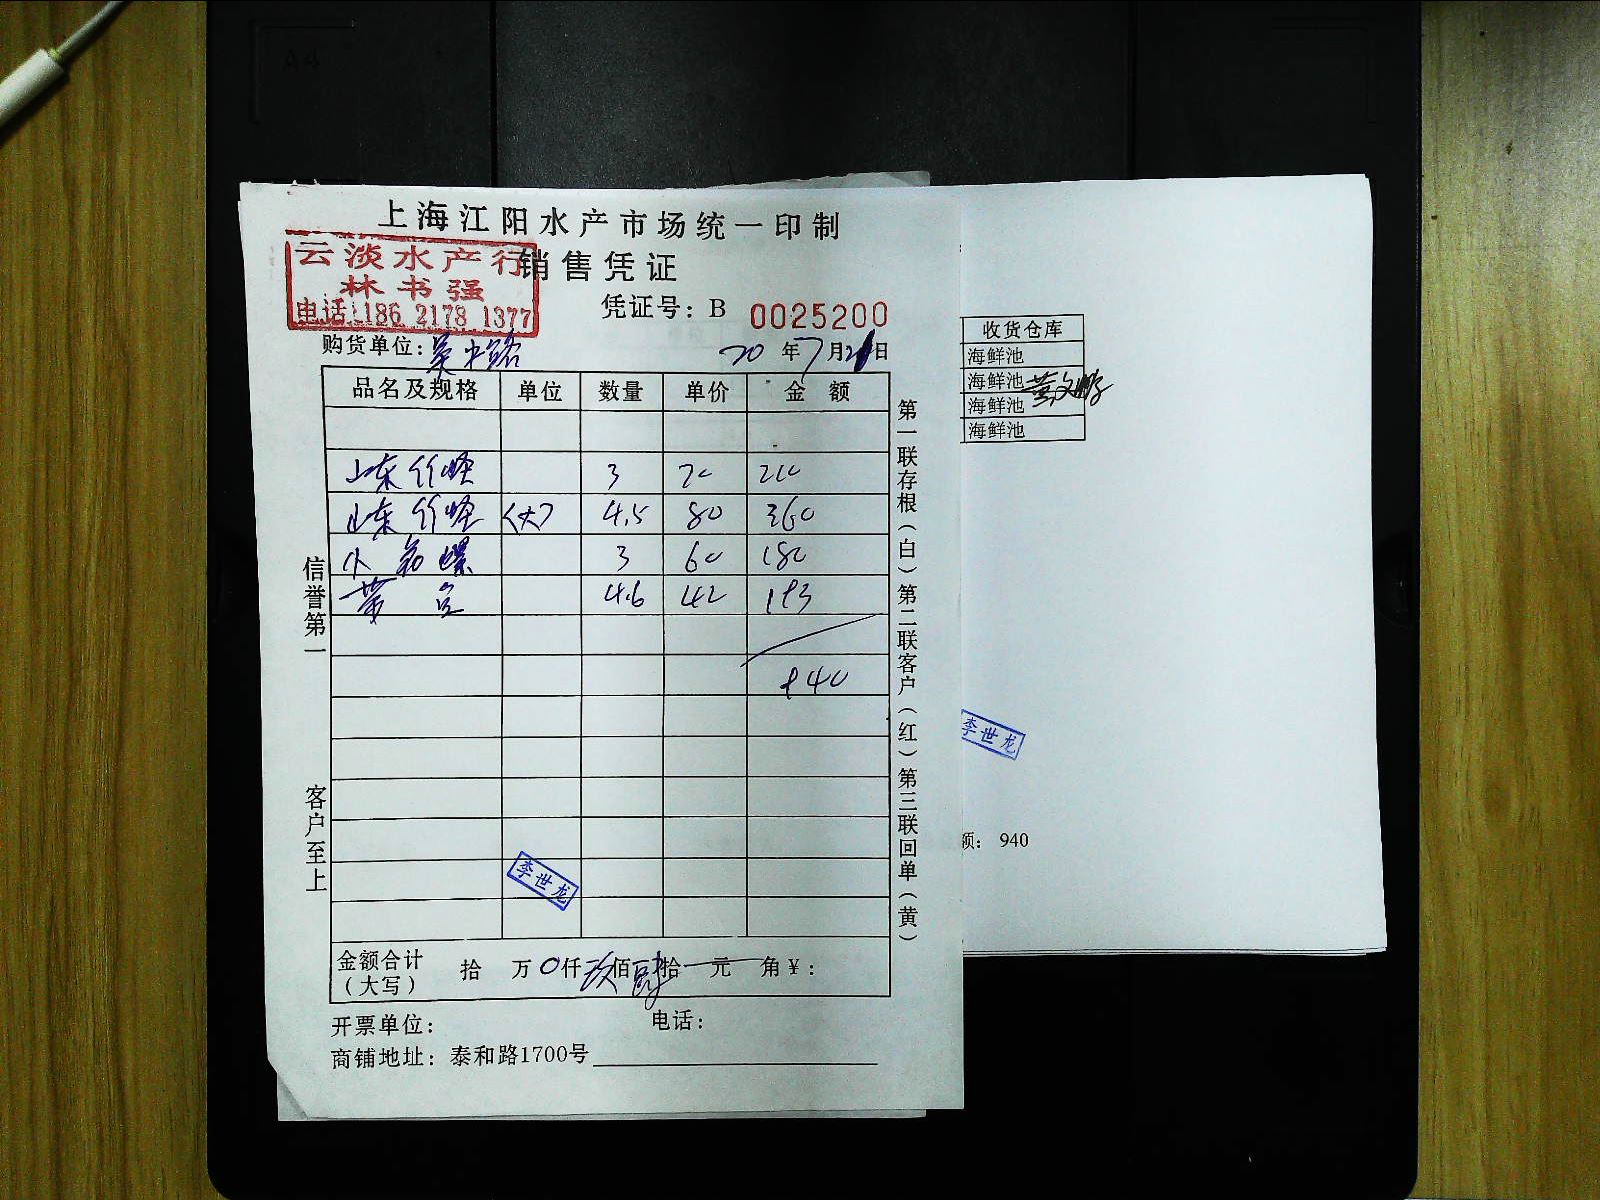 A4
上海江阳水产市场统一印制
云淡水产行
林书强
电话:186 2178 1377
销售凭证
凭证号：B 0025200
购货单位：吴中路 20年7月21日
品名及规格 单位 数量 单价 金额
山东竹蛏 3 70 210
山东竹蛏 (大) 4.5 80 360
小 螺 3 60 180
4.6 42 193
940
李世龙
金额合计（大写） 拾 万0仟玖佰肆拾 元 角¥：
开票单位： 电话：
商铺地址：泰和路1700号
信誉第一
客户至上
第一联存根（白）第二联客户（红）第三联回单（黄）
收货仓库
海鲜池
海鲜池
海鲜池
海鲜池
黄文鹏
李世龙
额： 940